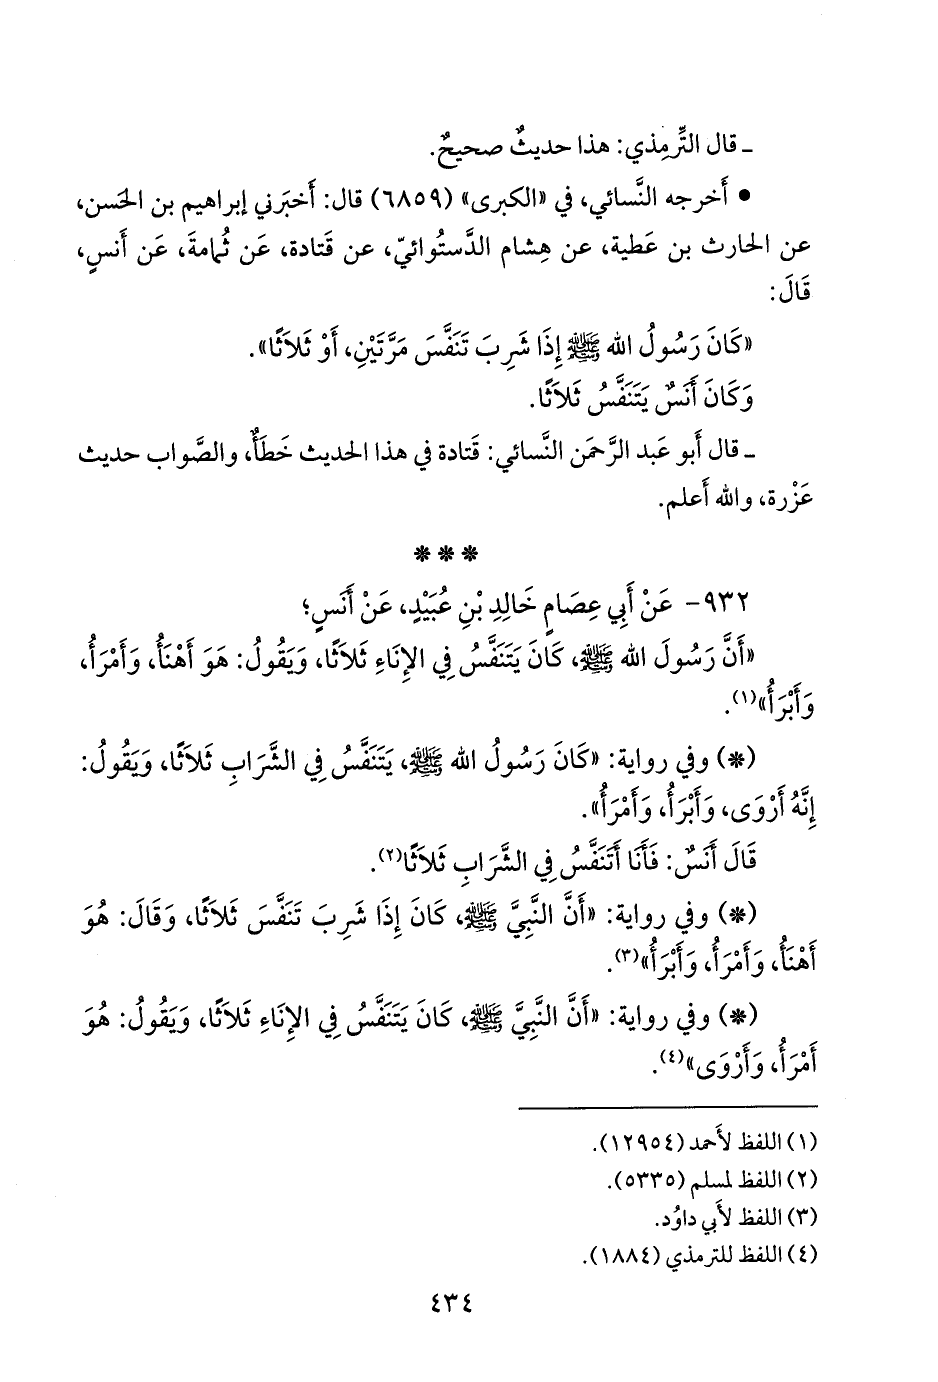 ـ قال التِّرمِذي: هذا حديثٌ صحيحٌ.
• أَخرجه النَّسائي، في «الكبرى» (٦٨٥٩) قال: أَخبَرني إبراهيم بن الحَسن،
عن الحارث بن عَطية، عن هِشام الدَّستُوائيّ، عن قَتادة، عَن ثُمامةَ، عَن أَنسٍ،
قَالَ:
«كَانَ رَسُولُ الله ﷺ إِذَا شَرِبَ تَنَفَّسَ مَرَّتَيْنِ، أَوْ ثَلاَثًا».
وَكَانَ أَنَسٌ يَتَنَفَّسُ ثَلاَثًا.
ـ قال أَبو عَبد الرَّحمَن النَّسائي: قَتادة في هذا الحديث خَطَأٌ، والصَّواب حديث
عَزْرة، والله أَعلم.
* * *
٩٣٢- عَنْ أَبِي عِصَامٍ خَالِدِ بْنِ عُبَيْدٍ، عَنْ أَنَسٍ؛
«أَنَّ رَسُولَ الله ﷺ، كَانَ يَتَنَفَّسُ فِي الإِنَاءِ ثَلاَثًا، وَيَقُولُ: هَوَ أَهْنَأُ، وَأَمْرَأُ،
وَأَبْرَأُ»(١).
(*) وفي رواية: «كَانَ رَسُولُ الله ﷺ، يَتَنَفَّسُ فِي الشَّرَابِ ثَلاَثًا، وَيَقُولُ:
إِنَّهُ أَرْوَى، وَأَبْرَأُ، وَأَمْرَأُ».
قَالَ أَنَسٌ: فَأَنَا أَتَنَفَّسُ فِي الشَّرَابِ ثَلاَثًا(٢).
(*) وفي رواية: «أَنَّ النَّبِيَّ ﷺ، كَانَ إِذَا شَرِبَ تَنَفَّسَ ثَلاَثًا، وَقَالَ: هُوَ
أَهْنَأُ، وَأَمْرَأُ، وَأَبْرَأُ»(٣).
(*) وفي رواية: «أَنَّ النَّبِيَّ ﷺ، كَانَ يَتَنَفَّسُ فِي الإِنَاءِ ثَلاَثًا، وَيَقُولُ: هُوَ
أَمْرَأُ، وَأَرْوَى»(٤).
(١) اللفظ لأَحمد (١٢٩٥٤).
(٢) اللفظ لمسلم (٥٣٣٥).
(٣) اللفظ لأَبي داوُد.
(٤) اللفظ للترمذي (١٨٨٤).
٤٣٤